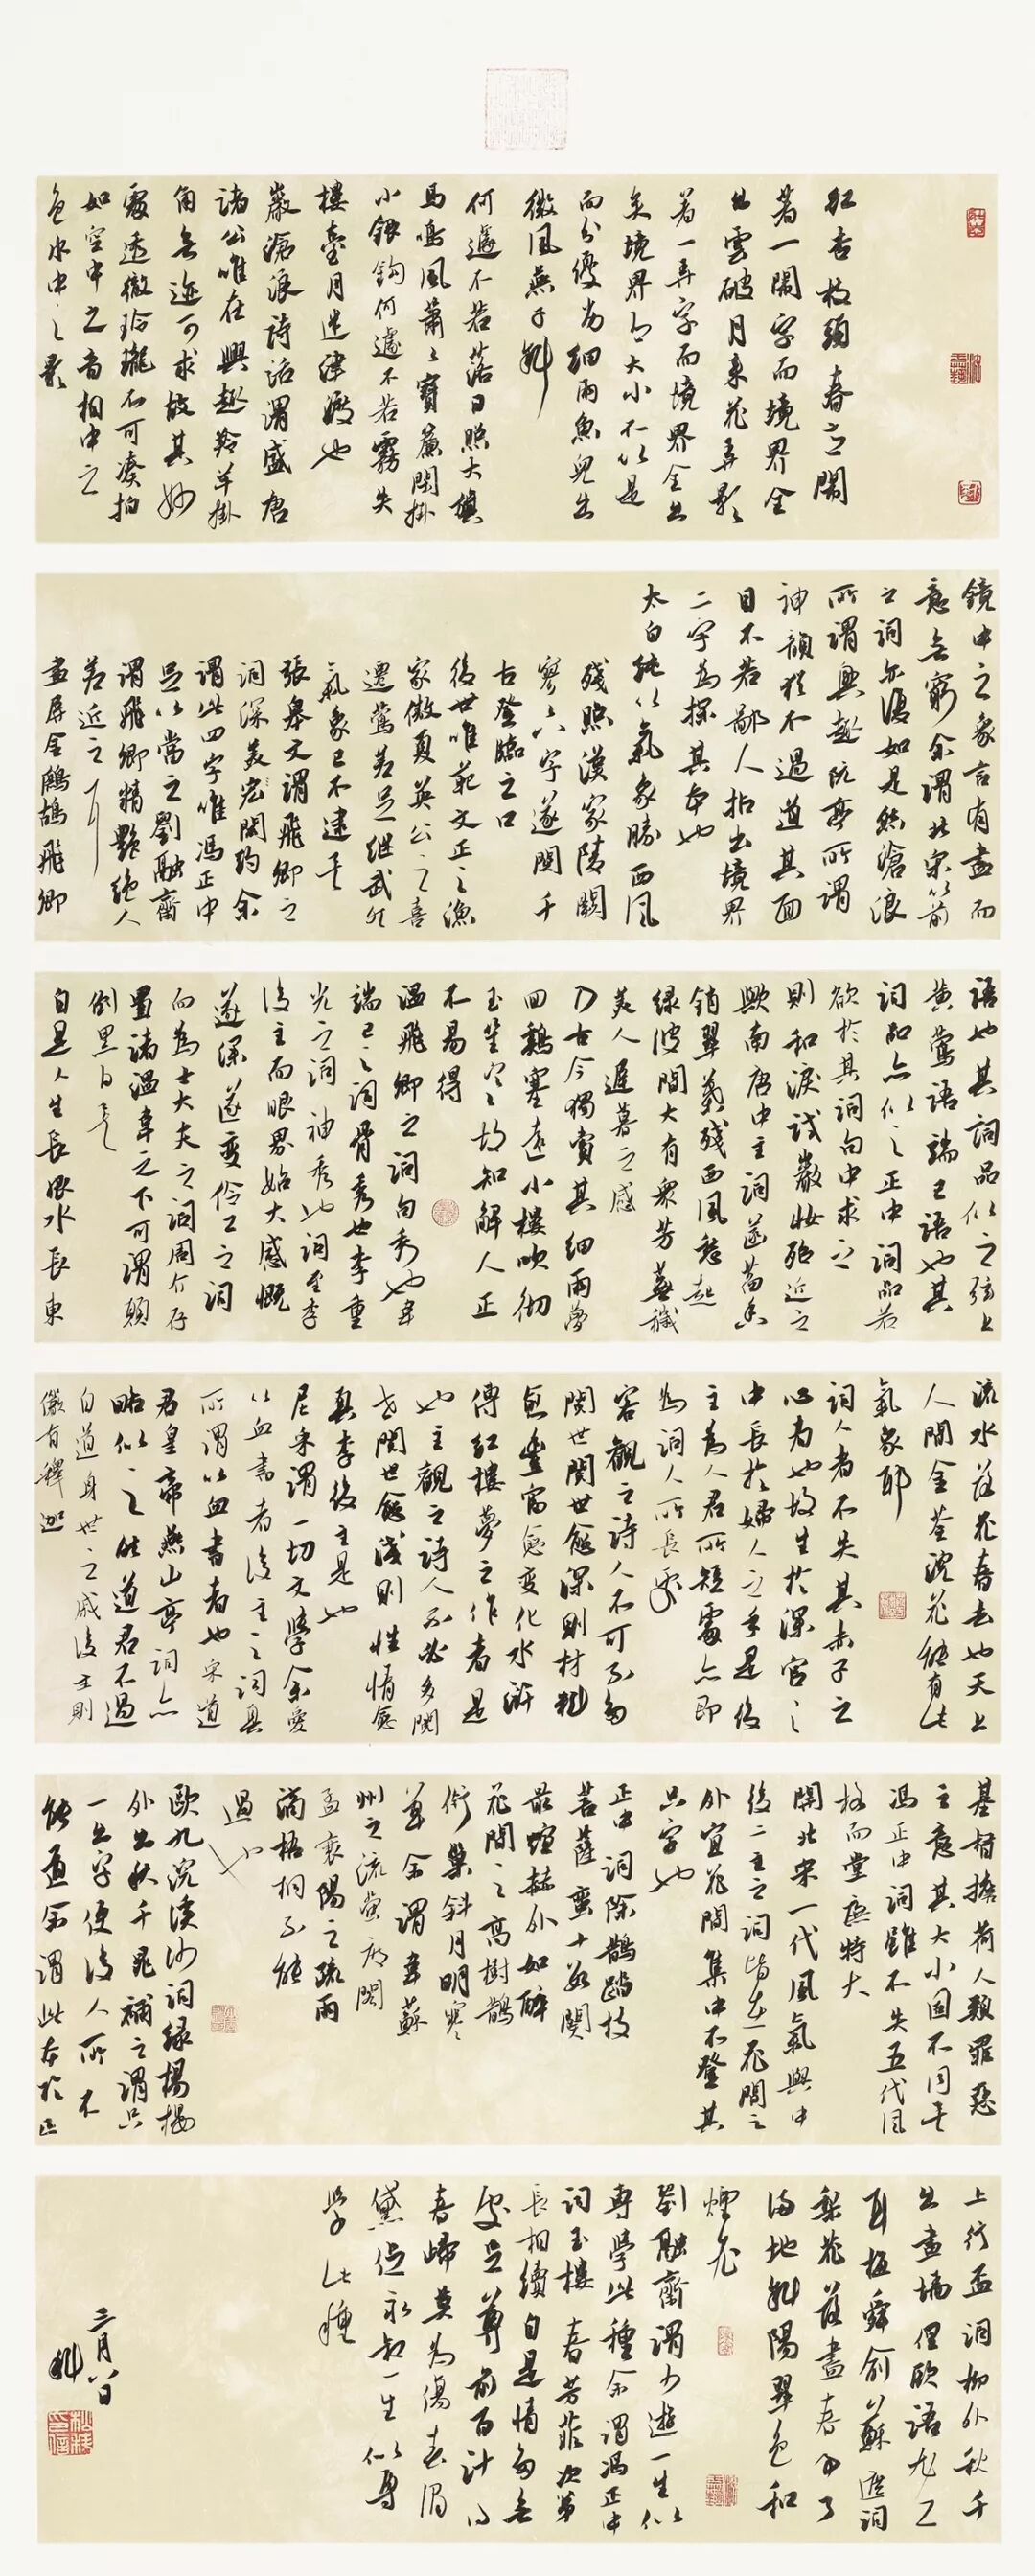 紅杏枝頭春意鬧
著一鬧字而境界全
出雲破月來花弄影
著一弄字而境界全出
矣境界有大小不以是
而分優劣細雨魚兒出
微風燕子斜
何遽不若落日照大旗
馬鳴風蕭蕭寶簾閒掛
小銀鉤何遽不若霧失
樓臺月迷津渡也
嚴滄浪詩話謂盛唐
諸公唯在興趣羚羊掛
角無迹可求故其妙
處透徹玲瓏不可湊拍
如空中之音相中之
色水中之影
鏡中之象言有盡而
意無窮余謂北宋以前
之詞亦復如是然滄浪
所謂興趣阮亭所謂
神韻猶不過道其面
目不若鄙人拈出境界
二字為探其本也
太白純以氣象勝西風
殘照漢家陵闕
寥寥八字遂關千
古登臨之口
後世唯范文正之漁
家傲夏英公之喜
遷鶯差足繼武然
氣象已不逮矣
張皋文謂飛卿之
詞深美宏閎約余
謂此四字唯馮正中
足以當之劉融齋
謂飛卿精艷絕人
差近之耳
畫屏金鷓鴣飛卿
語也其詞品似之弦上
黃鶯語端己語也其
詞品亦似之正中詞品若
欲於其詞句中求之
則和淚試嚴妝殆近之
歟南唐中主詞菡萏香
銷翠葉殘西風愁起
綠波間大有眾芳蕪穢
美人遲暮之感
乃古今獨賞其細雨夢
回雞塞遠小樓吹徹
玉笙寒故知解人正
不易得
溫飛卿之詞句秀也韋
端己之詞骨秀也李重
光之詞神秀也詞至李
後主而眼界始大感慨
遂深遂變伶工之詞
而為士大夫之詞周介存
置諸溫韋之下可謂顛
倒黑白矣
自是人生長恨水長東
流水落花春去也天上
人間金荃浣花能有此
氣象耶
詞人者不失其赤子之
心者也故生於深宮之
中長於婦人之手是後
主為人君所短處亦即
為詞人所長處
客觀之詩人不可不多
閱世閱世愈深則材料
愈豐富愈變化水滸
傳紅樓夢之作者是
也主觀之詩人不必多閱
世閱世愈淺則性情愈
真李後主是也
尼采謂一切文學余愛
以血書者後主之詞真
所謂以血書者也宋道
君皇帝燕山亭詞亦
略似之然道君不過
自道身世之戚後主則
儼有釋迦
基督擔荷人類罪惡
之意其大小固不同矣
馮正中詞雖不失五代風
格而堂廡特大
開北宋一代風氣與中
後二主之詞皆在花間之
外宜花間集中不登其
隻字也
正中詞除鵲踏枝
菩薩蠻十數闋
最煊赫外如醉
花間之高樹鵲
銜巢斜月明寒
草余謂韋蘇
州之流螢度閣
孟襄陽之疏雨
滴梧桐不能
過也
歐九浣溪沙詞綠楊樓
外出秋千晁補之謂只
一出字便後人所不
能道余謂此本於正
上行盃詞柳外秋千
出畫墻但歐語尤工
耳梅舜俞蘇遮詞
梨花落盡春事了
滿地斜陽翠色和
煙老
劉融齋謂少遊一生似
專學此種余謂馮正中
詞玉樓春芳菲次第
長相續自是情多無
處足尊前百計得
春歸莫為傷春眉
黛促永叔一生似專
學此種
三月八日